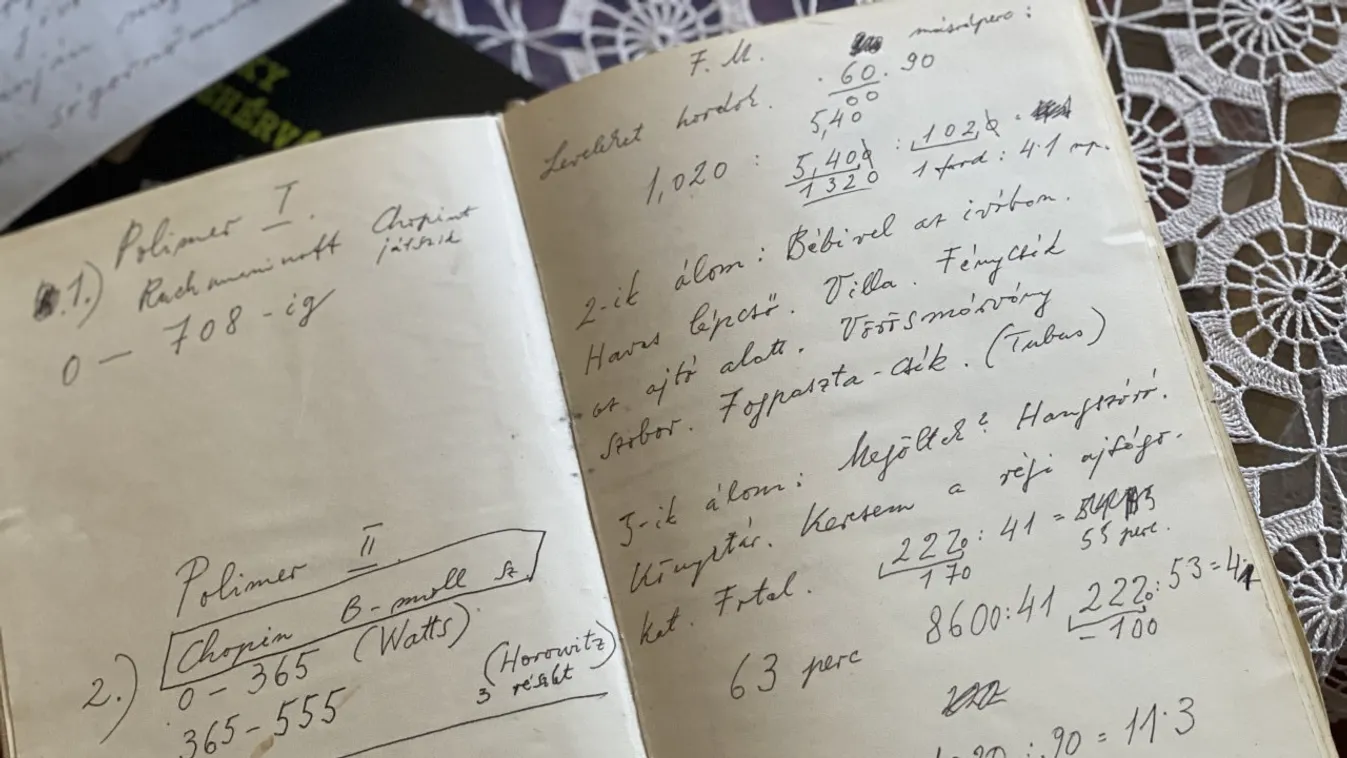 Polimer I.
1.) Rachmaninoff Chopint
játszik
0 — 708-ig
Polimer II.
2.) Chopin B-moll sz.
0 - 365 (Watts)
365 - 555 (Horowitz)
3 részlet
F. M. másodperc:
Leveleket hordok. 60 . 90
00
5,40
1,020 : 5,400 : 1020 =
1320 1 ford : 4.1 mp.
2-ik álom: Bébivel az ivóban.
Havas lépcső. Villa. Fénycsík
az ajtó alatt. Vörösmárvány
szobor. Fogpaszta-csík. (Tubus)
3-ik álom: Megöltek? Hangszóró.
Könyvtár. Keresem a régi ajtógo-
kat. Fotel. 2220 : 41 =
170 55 perc.
63 perc 8600:41 2220:53 = 41
-100
: 90 = 11.3